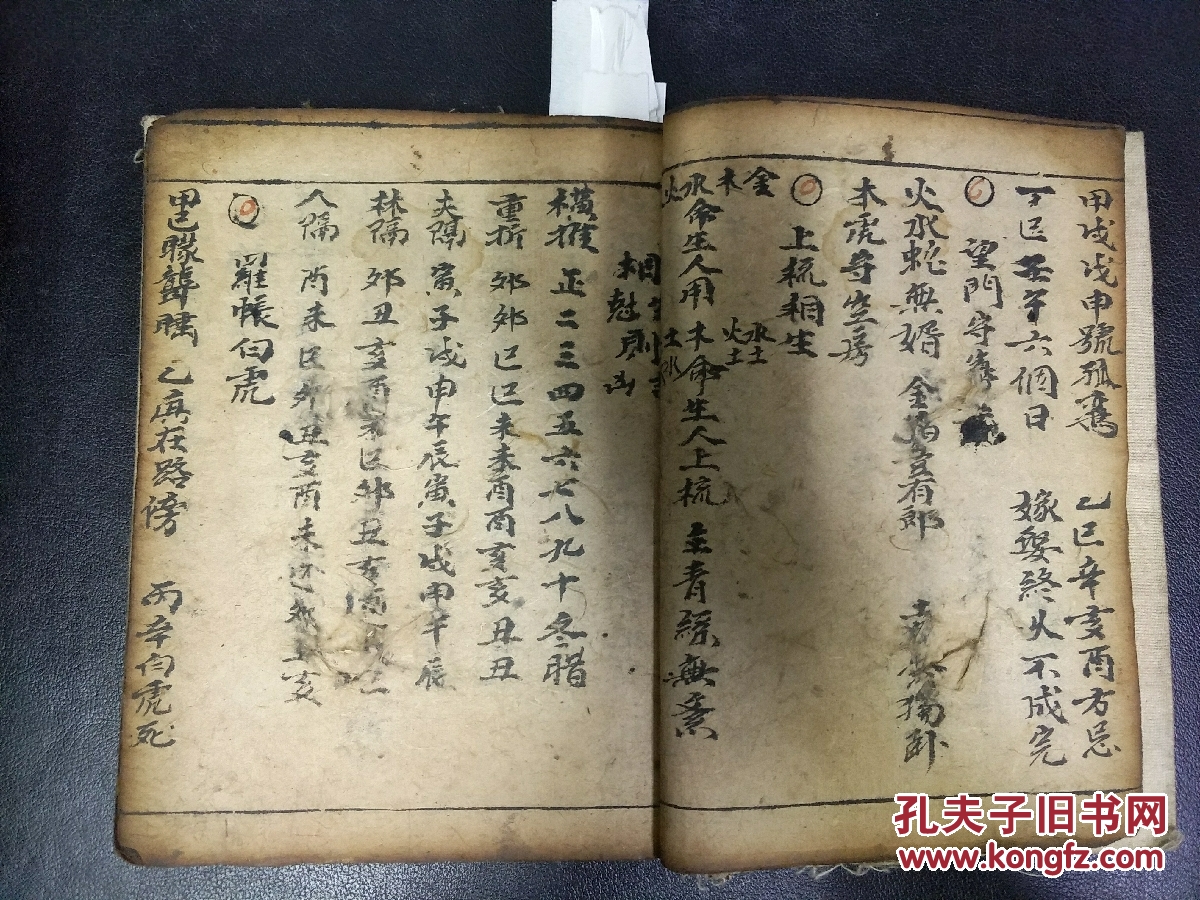 甲戌戊申號孤鸞 乙巳辛亥酉方忌
丁巳壬午六個日 嫁娶終久不成完
望門守
火水蛇無婿 金 有郎 獨卧
木虎守空房
上梳相生
金木水火命生人用水土火土土水木命生人上梳 主青綠無
相
相尅則凶
橫推 正二三四五六七八九十冬腊
重折 卯卯巳巳未未酉酉亥亥丑丑
夫隔 寅子戌申午辰寅子戌申午辰
林隔 卯丑亥酉未巳卯丑亥酉
人隔 酉未巳卯丑亥酉未巳卯丑亥
羅帳白虎
甲己 乙庚在路傍 丙辛白虎死
孔夫子旧书网
www.kongfz.com